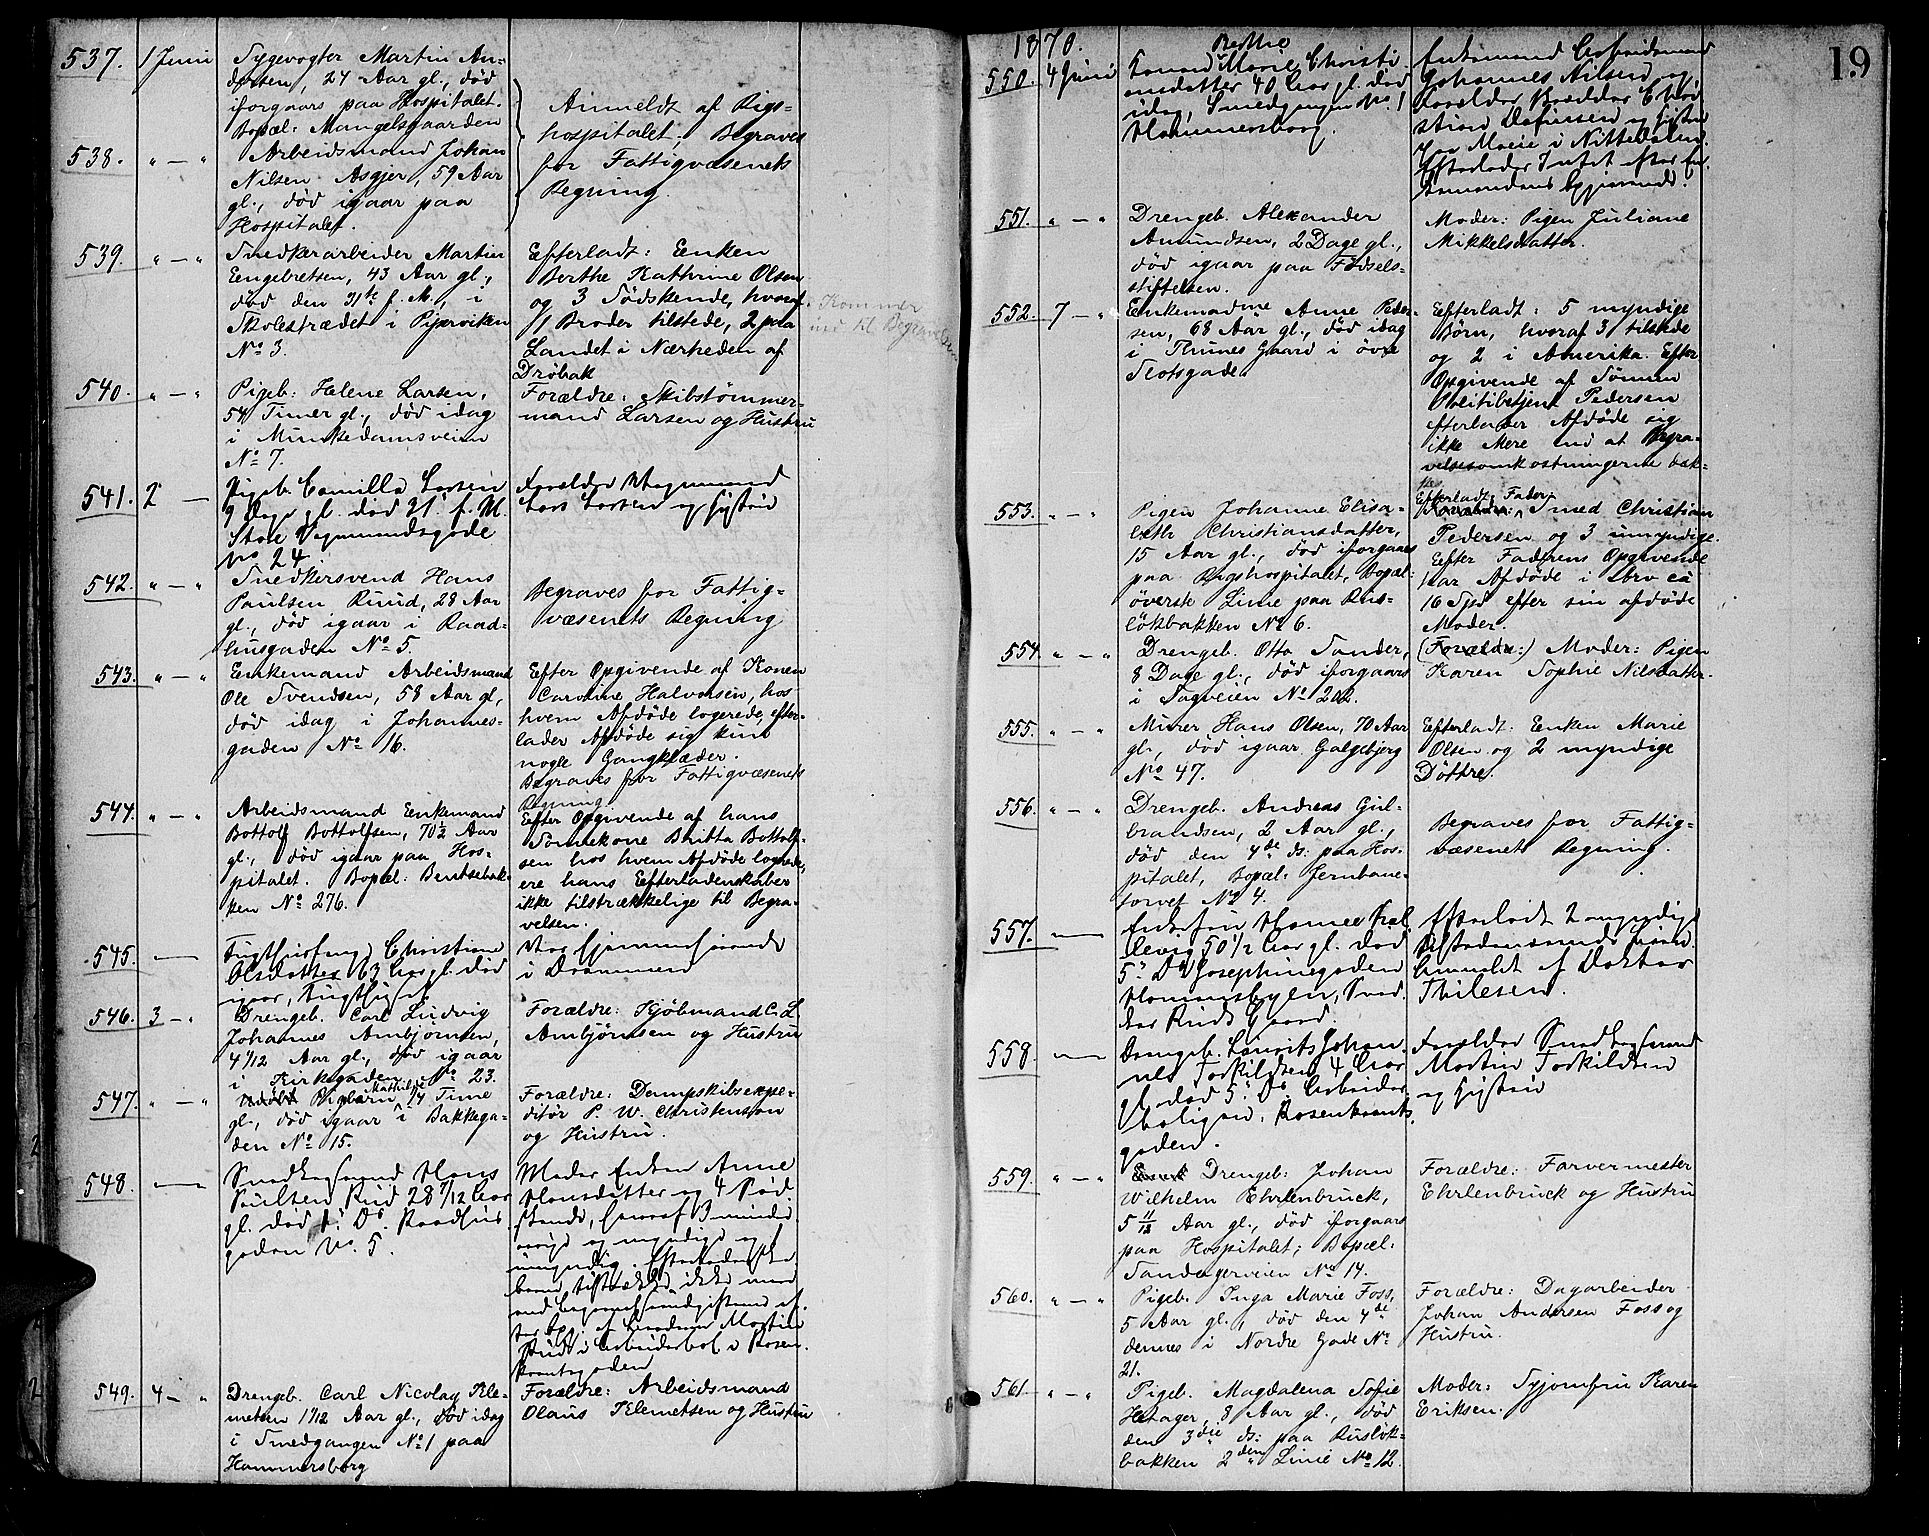 537. 1 Juni Sygevogter Martin An-
dersen, 24 Aar gl., død
iforgaars paa Hospitalet.
Bopæl: Mangelsgaarden
Anmeldt af Rigs-
hospitalet; Begraves
for Fattigvæsenets
Regning.
538. " — " Arbeidsmand Johan
Nilsen Asgjer, 59 Aar
gl., død igaar paa
Hospitalet.
539. " — " Snedkerarbeider Martin
Engebretsen, 43 Aar gl.,
død den 31te f. M., i
Skolestrædet i Piperviken
No 3.
Efterladt: Enken
Berthe Kathrine Olsen
og 3 Sødskende, hvoraf
1 Broder tilstede, 2 paa
Landet i Nærheden af
Drøbak
Kommer
ind til Begravelsen
540. " — " Pigeb: Helene Larsen,
54 Timer gl., død idag
i Munkedamsveien
No 7.
Forældre: Skibstømmer-
mand Larsen og Hustru
541. 2 — Pigeb. Camilla Larsen
9 Dage gl. død 31' f. M.
Store Vognmandsgade
No 24
Forældre Vognmand
Lars Larsen og Hustru
542. " — " Snedkersvend Hans
Paulsen Ruud, 28 Aar
gl., død igaar i Raad-
husgaden No 5.
Begraves for Fattig-
væsenets Regning
543. " — " Enkemand Arbeidsmand
Ole Svendsen, 58 Aar gl.,
død idag i Johannes-
gaden No 16.
Efter Opgivende af Konen
Caroline Halvorsen, hos
hvem Afdøde logerede, efter-
lader Afdøde sig kun
nogle Gangklæder.
Begraves for Fattigvæsenets
Regning.
544. " — " Arbeidsmand Enkemand
Bottolf Bottolfsen, 70½ Aar
gl., død igaar paa Hos-
pitalet. Bopæl: Bentsebak-
ken No 276.
Efter Opgivende af hans
Sønnekone Britta Bottolf-
sen hos hvem Afdøde logerede,
ere hans Efterladenskaber
ikke tilstrækkelige til Begra-
velsen.
545. — Tugthusfange Christiane
Olsdatter 63 Aar gl. død
igaar, Tugthuset
Var hjemmehørende
i Drammen
546. 3 — " Drengeb. Carl Ludvig
Johannes Ambjørnsen,
4 1/12 Aar gl., død igaar
i Kirkegaden No 23.
Forældre: Kjøbmand C. L.
Ambjørnsen og Hustru
547. " — " Pigebarn Mathilde 1/4 Time
gl., død igaar i Bakkega-
den No 15.
Forældre: Dampskibsexpe-
ditør P. W. Christensen
og Hustru.
548. — Snedkersvend Hans
Paulsen Rud 28 7/12 Aar
gl. død 1' Ds. Raadhus
gaden No. 5.
Moder Enken Anne
Hansdatter og 4 Sød
skende, hvoraf 3 minder
aarige og myndige og
umyndig.
Rud i Arbeiderbol. i Rosen
krantzgaden
549. 4 — " Drengeb. Carl Nicolay Kle-
metsen 1 1/12 Aar gl., død idag
i Smedgangen No 1 paa
Hammersborg
Forældre: Arbeidsmand
Olaus Klemetsen og Hustru
1870.
19
550. 4 Juni Konen Berthe Marie Christi
ansdatter 40 Aar gl. død
idag, Smedgangen No. 1
Hammersborg.
Enkemand Arbeidsmand
Johannes Nilsen og
Forældre Christian
og Hustru
Marie i Nittedalen.
Efterlader Intet efter En-
kemandens Opgivende.
551. " — " Drengeb. Alexander
Amundsen, 2 Dage gl.,
død igaar paa Fødsels-
stiftelsen.
Moder: Pigen Juliane
Mikkelsdatter.
552. 7 — " Enkemadme Anne Peder-
sen, 68 Aar gl., død idag
i Thunes Gaard i øvre
Slotsgade
Efterladt: 5 myndige
Børn, hvoraf 3 tilstede
og 2 i Amerika. Efter
Opgivende af Sønnen
Politibetjent Pedersen
efterlader Afdøde sig
ikke Mere end at Begra-
velsesomkostningerne dæk-
kes
553. " — " Pigen Johanne Elisa-
beth Christiansdatter,
15 Aar gl., død iforgaars
paa Rigshospitalet, Bopæl:
øverste Linie paa Rus-
løkbakken No 6.
Efterladt: Fader
Forældre: Smed Christian
Pedersen og 3 umyndige.
Efter Faderens Opgivende
har Afdøde i Arv ca
16 Spd efter sin afdøde
Moder.
554. " — " Drengeb. Otto Sander,
8 Dage gl., død iforgaars
i Sagveien No 202.
(Forældre:) Moder: Pigen
Karen Sophie Nilsdatter.
555. " — " Murer Hans Olsen, 70 Aar
gl., død igaar Galgebjerg
No 47.
Efterladt: Enken Marie
Olsen og 2 myndige
Døttre.
556. " — " Drengeb. Andreas Gul-
brandsen, 2 Aar gl.,
død den 4de ds: paa Hos-
pitalet, Bopæl: Jernbane-
torvet No 4.
Begraves for Fattig-
væsenets Regning.
557. — Enkefru
50 1/2 Aar gl. død
5' Ds Josephinegaden
Homansbyen, Sned
ker Ruds Gaard.
Efterladt 2 myndige
tilstedeværende
Anmeldt af Doktor
Thilesen.
558. — Drengeb. Lauritz Johan
nes Torkildsen 4 Aar
gl. død 5' Ds. Arbeider
boligen, Rosenkrantz
gaden.
Forældre Snedkersvend
Martin Torkildsen
og Hustru
559. " — " Drengeb: Johan
Wilhelm Ehrlenbruck,
5 11/12 Aar gl., død iforgaars
paa Hospitalet; Bopæl:
Tandagerveien No 14.
Forældre: Farvermester
Ehrlenbruck og Hustru
560. " — " Pigeb. Inga Marie Foss,
5 Aar gl., død den 4de
dennes i Nordre Gade No
21.
Forældre: Dagarbeider
Johan Andersen Foss og
Hustru.
561. " — " Pigeb. Magdalena Sofie
Hetager, 8 Aar gl., død
den 3die ds: paa Ruslök-
bakken 2den Linie No 12.
Moder: Syjomfru Karen
Eriksen.